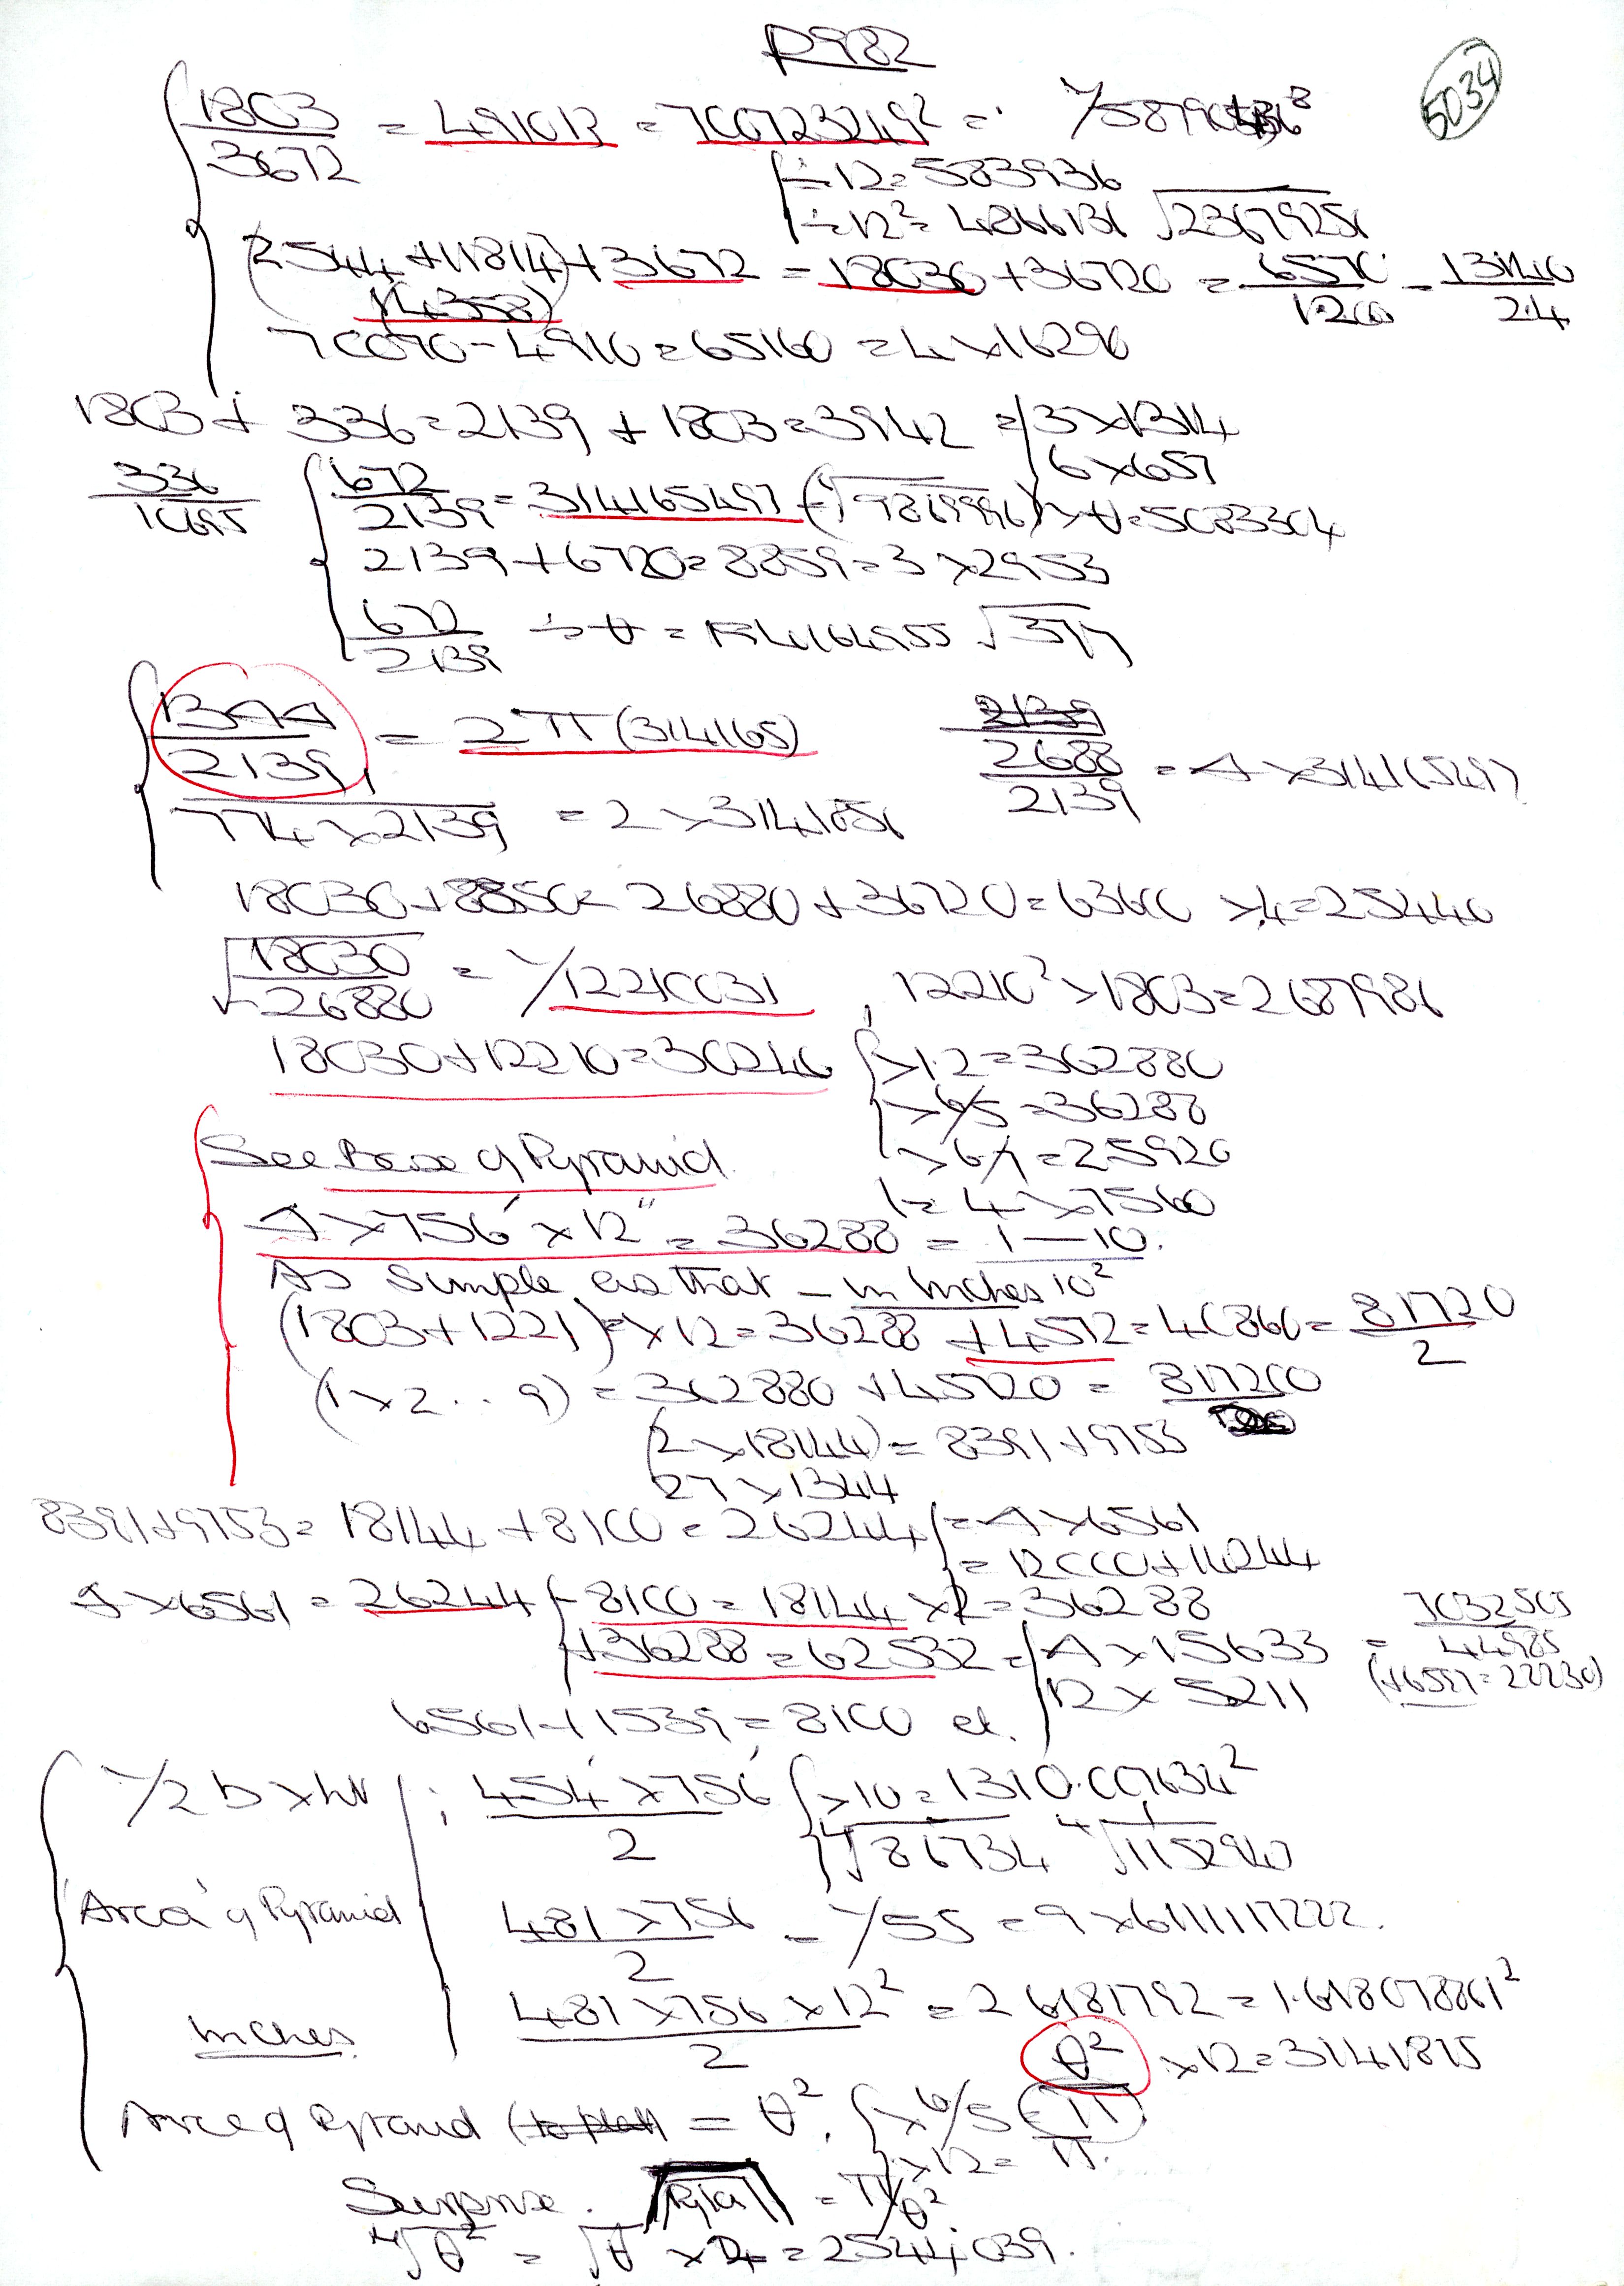 P982
5034
1803/3672 = 491013 = 700723249² = 1/5879
÷12 = 583936
÷12² = 4866131 √23679251
(2544 + 11814) + 3672 = 18030 + 36720 = 6570/1.200 = 13140/2.4
(14358)
70070 - 4910 = 65160 = 4 × 16290
1803 + 336 = 2139 + 1803 = 3942 = 3 × 1314
6 × 657
336/10695 672/2139 = 314165497 (√9869996) × θ = 5083304
2139 + 6720 = 8859 = 3 × 2953
672/2139 ÷ θ = √377
1344/2139 = 2 π (314165)
2139
2688/2139 = 4 × 314165497
774 × 2139 = 2 × 3141851
18030 + 8850 = 26880 + 36720 = 63600 × 4 = 25440
√18030/26880 = 1/12210031, 12210² × 1803 = 2687986
18030 + 12210 = 30240 × 1.2 = 362880
× 6/5 = 36288
× 6/7 = 25920
= 4 × 7560
See Base of Pyramid.
4 × 756' × 12" = 36288 = 1 — 10.
As Simple as that – in Inches 10²
(1803 + 1221) = × 12 = 36288 + 4572 = 40860 = 81720/2
(1 × 2 . . 9) = 362880 + 45720 = 817200
(2 × 18144) = 8391 + 9753
27 × 1344
8391 + 9753 = 18144 + 8100 = 26244 = 4 × 6561
= 12000 + 14244
4 × 6561 = 26244 - 8100 = 18144 × 2 = 36288
+ 36288 = 62532 = 4 × 15633 = 7032505/44985
12 × 5211 (+6597 = 22230)
6561 + 1539 = 8100 et.
1/2 b × ht ; 454' × 756'/2 × 10 = 1310.007634²
⁴√86734 ⁴√1152940
'Area' of Pyramid 481 × 756/2 = 1/55 = 9 × 6111117222.
Inches 481 × 756 × 12²/2 = 26181792 = 1.618078861²
θ² × 12 = 3141815
Area of Pyramid = θ². × 6/5 = π
× 12 = π.
Surprise. = π/θ²
⁴√θ² = √θ × 2 = 2544,039.